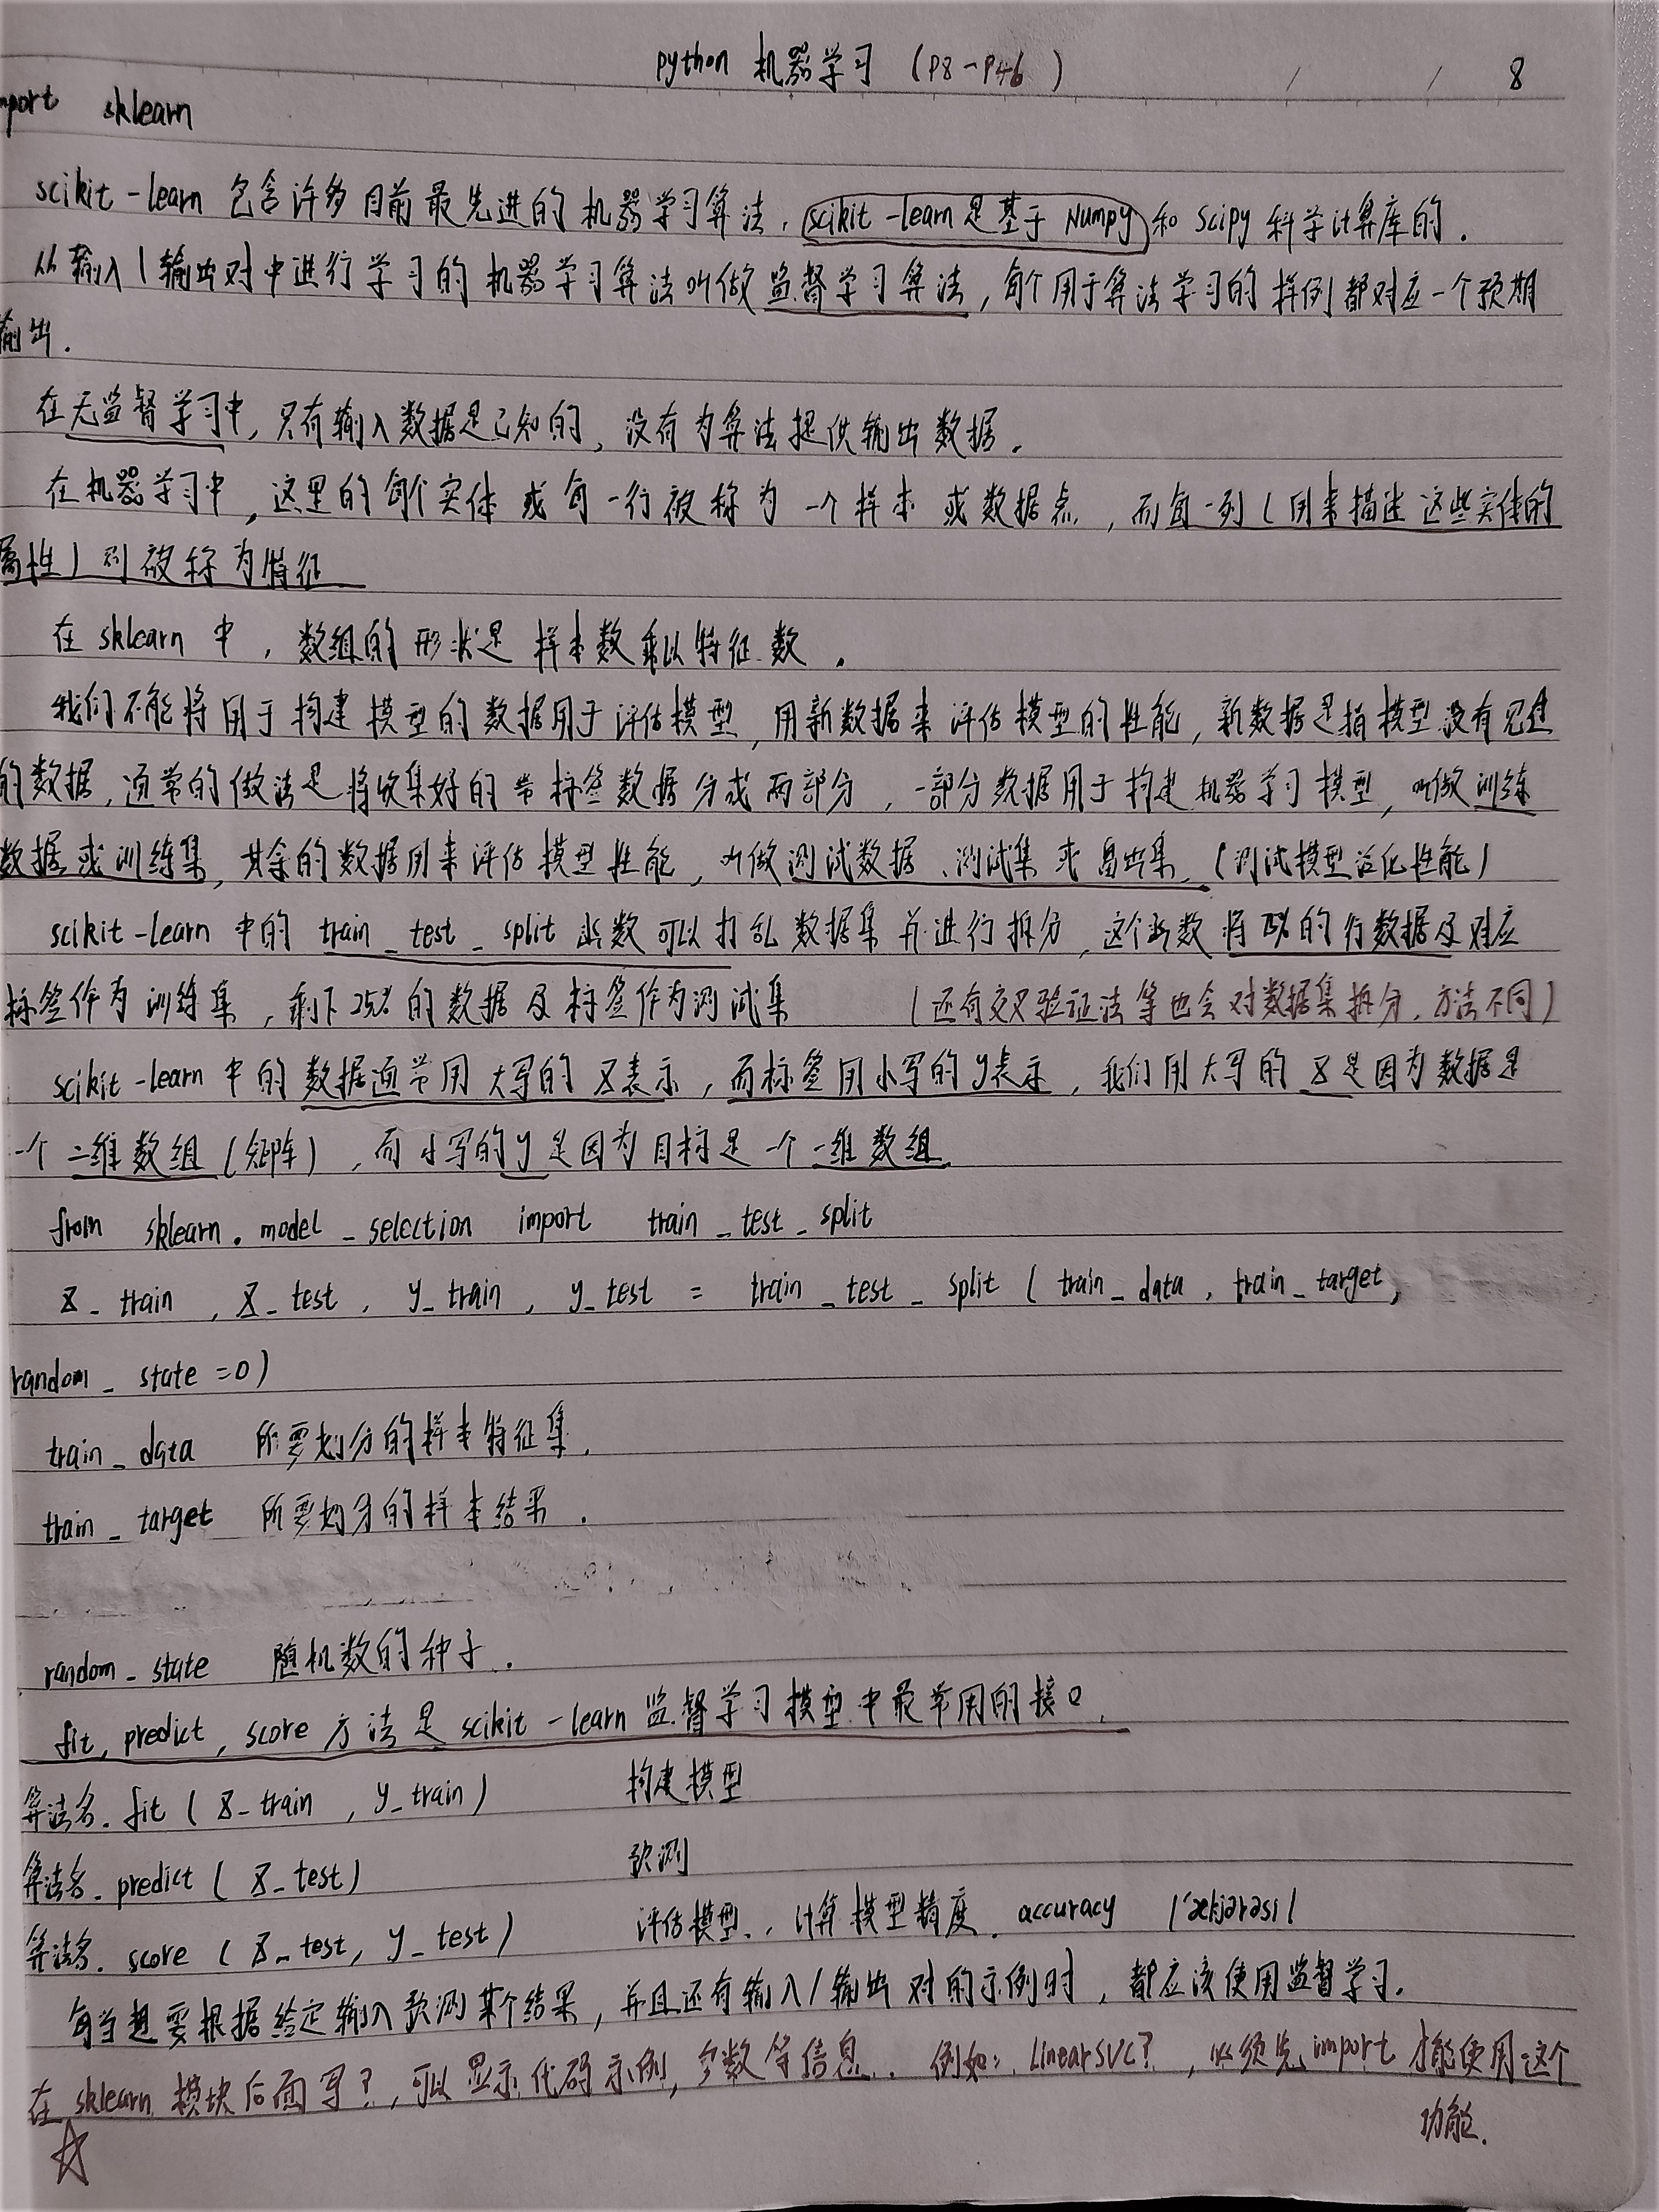 python 机器学习 (P8-P46) / / 8
import sklearn
scikit-learn 包含许多目前最先进的机器学习算法. scikit-learn是基于 Numpy 和 Scipy 科学计算库的.
从输入/输出对中进行学习的机器学习算法叫做监督学习算法, 每个用于算法学习的样例都对应一个预期
输出.
在无监督学习中, 只有输入数据是已知的, 没有为算法提供输出数据.
在机器学习中, 这里的每个实体或每一行被称为一个样本或数据点, 而每一列(用来描述这些实体的
属性)则被称为特征
在 sklearn 中, 数组的形状是样本数乘以特征数.
我们不能将用于构建模型的数据用于评估模型, 用新数据来评估模型的性能, 新数据是指模型没有见过
的数据, 通常的做法是将收集好的带标签数据分成两部分, 一部分数据用于构建机器学习模型, 叫做训练
数据或训练集, 其余的数据用来评估模型性能, 叫做测试数据、测试集或留出集. (测试模型泛化性能)
scikit-learn 中的 train_test_split 函数可以打乱数据集并进行拆分, 这个函数将 75% 的行数据及对应
标签作为训练集, 剩下25%的数据及标签作为测试集 (还有交叉验证法等也会对数据集拆分, 方法不同)
scikit-learn 中的数据通常用大写的 X表示, 而标签用小写的y表示, 我们用大写的 X是因为数据是
一个二维数组(矩阵), 而小写的y是因为目标是一个一维数组.
from sklearn.model_selection import train_test_split
X_train, X_test, y_train, y_test = train_test_split (train_data, train_target,
random_state=0)
train_data 所要划分的样本特征集.
train_target 所要划分的样本结果.
random_state 随机数的种子.
fit, predict, score 方法是 scikit-learn 监督学习模型中最常用的接口.
算法名.fit (X_train, y_train) 构建模型
算法名.predict (X_test) 预测
算法名.score (X_test, y_test) 评估模型, 计算模型精度. accuracy /ˈækjərəsi/
每当想要根据给定输入预测某个结果, 并且还有输入/输出对的示例时, 都应该使用监督学习.
在 sklearn 模块后面写?, 可以显示代码示例, 参数等信息. 例如: LinearSVC?, 必须先 import 才能使用这个
功能.